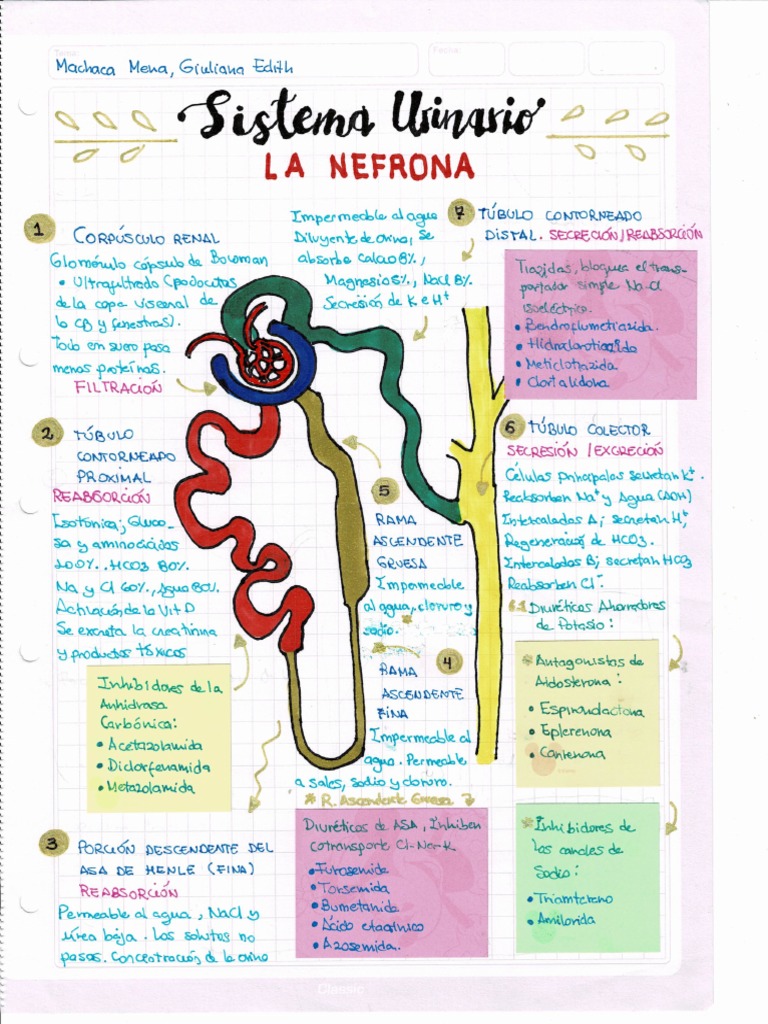 Tema:
Fecha:
Machaca Mena, Giuliana Edith
Sistema Urinario
LA NEFRONA
1
CORPÚSCULO RENAL
Glomérulo cápsula de Bowman
• Ultrafiltrado (podocitos
de la capa visceral de
la CB y fenestras).
Todo en suero pasa
menos proteínas.
FILTRACIÓN
2
TÚBULO
CONTORNEADO
PROXIMAL
REABSORCIÓN
Isotónica; Gluco-
sa y aminoácidos
100%. HCO3 80%
Na y Cl 60%, Agua 80%.
Activación de la Vit D
Se excreta la creatinina
y productos tóxicos
Inhibidores de la
Anhidrasa
Carbónica:
• Acetazolamida
• Diclorfenamida
• Metazolamida
3
PORCIÓN DESCENDENTE DEL
ASA DE HENLE (FINA)
REABSORCIÓN
Permeable al agua, NaCl y
úrea baja. Los solutos no
pasas. Concentración de la orina
Impermeable al agua
Diluyente de orina, se
absorbe calcio 8%,
Magnesio 5%, NaCl 8%.
Secresión de K e H+
7
TÚBULO CONTORNEADO
DISTAL. SECRECIÓN/REABSORCIÓN
Tiazidas, bloquea el trans-
portador simple Na-Cl
isoeléctrico.
• Bendroflumetiazida.
• Hidroclorotiazida
• Meticlotiazida
• Clortalidona
6
TÚBULO COLECTOR
SECRESIÓN / EXCRECIÓN
Células principales secretan K+.
Reabsorben Na+ y Agua (ADH)
Intercaladas A; secretan H+,
Regeneración de HCO3.
Intercaladas B; secretan HCO3
Reabsorben Cl-.
6.1 Diuréticos Ahorradores
de Potasio:
* Antagonistas de
Aldosterona:
• Espironolactona
• Eplerenona
• Canrenona
* Inhibidores de
los canales de
Sodio:
• Triamtereno
• Amilorida
5
RAMA
ASCENDENTE
GRUESA
Impermeable
al agua, cloruro y
sodio.
4
RAMA
ASCENDENTE
FINA
Impermeable al
agua. Permeable
a sales, sodio y cloruro.
* R. Ascendente Gruesa
Diuréticos de ASA, Inhiben
cotransporte Cl-Na-K
• Furosemida
• Torsemida
• Bumetanida
• Ácido etacrínico
• Azosemida.
Classic